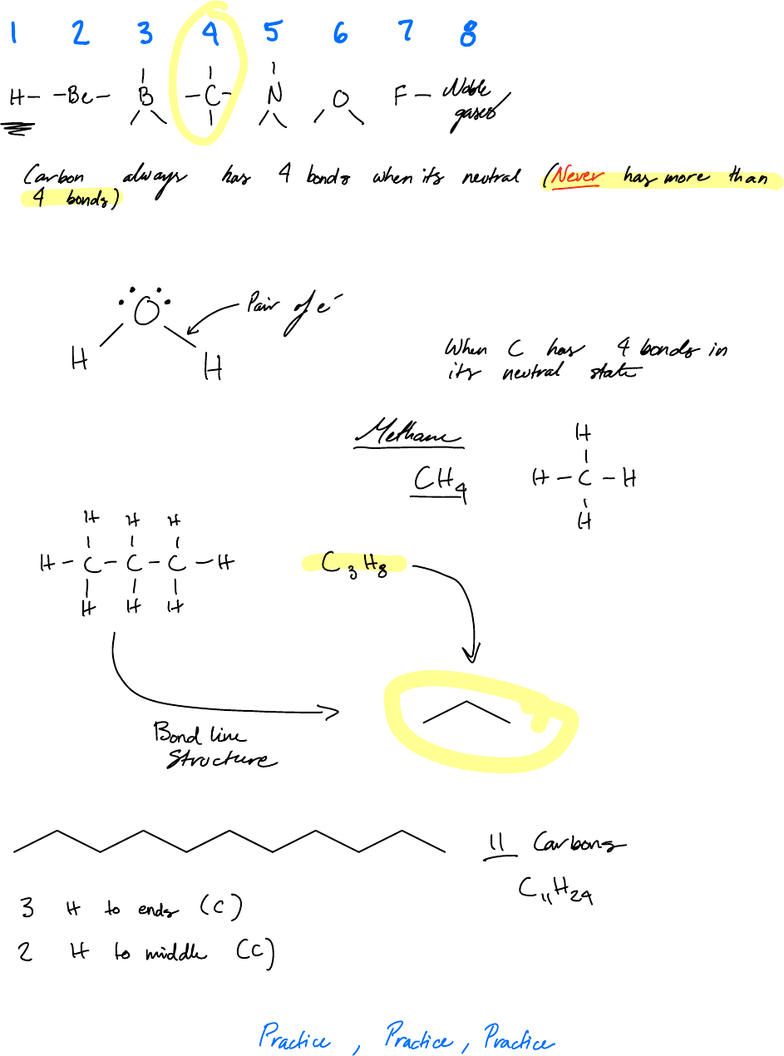 1 2 3 4 5 6 7 8
H- -Be- B -C- N O F - Noble
gases
Carbon always has 4 bonds when its neutral (Never has more than
4 bonds)
O
Pair of e⁻
H H
When C has 4 bonds in
its neutral state
Methane
CH₄
H
H - C - H
H
H H H
H - C - C - C - H
H H H
C₃H₈
Bond line
Structure
11 Carbons
C₁₁H₂₄
3 H to ends (C)
2 H to middle (C)
Practice, Practice, Practice